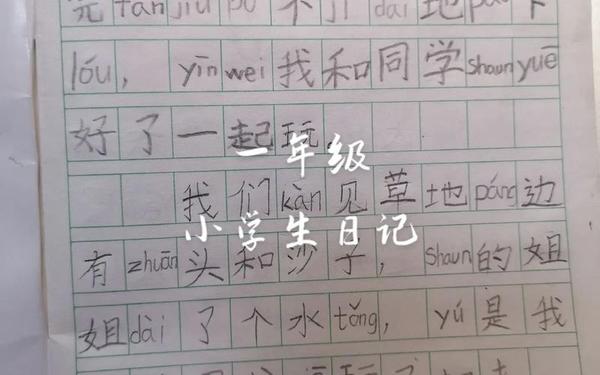 tàn jiù pò 不 jí dài 地 pǎo 下
lóu, yīn wei 我和同学 shaun yuē
好了一起玩。
一年级
我们 kàn 见草地 páng 边
小学生日记
有 zhuān 头和沙子, shaun 的姐
姐 dài 了个水 tǒng, yú 是我